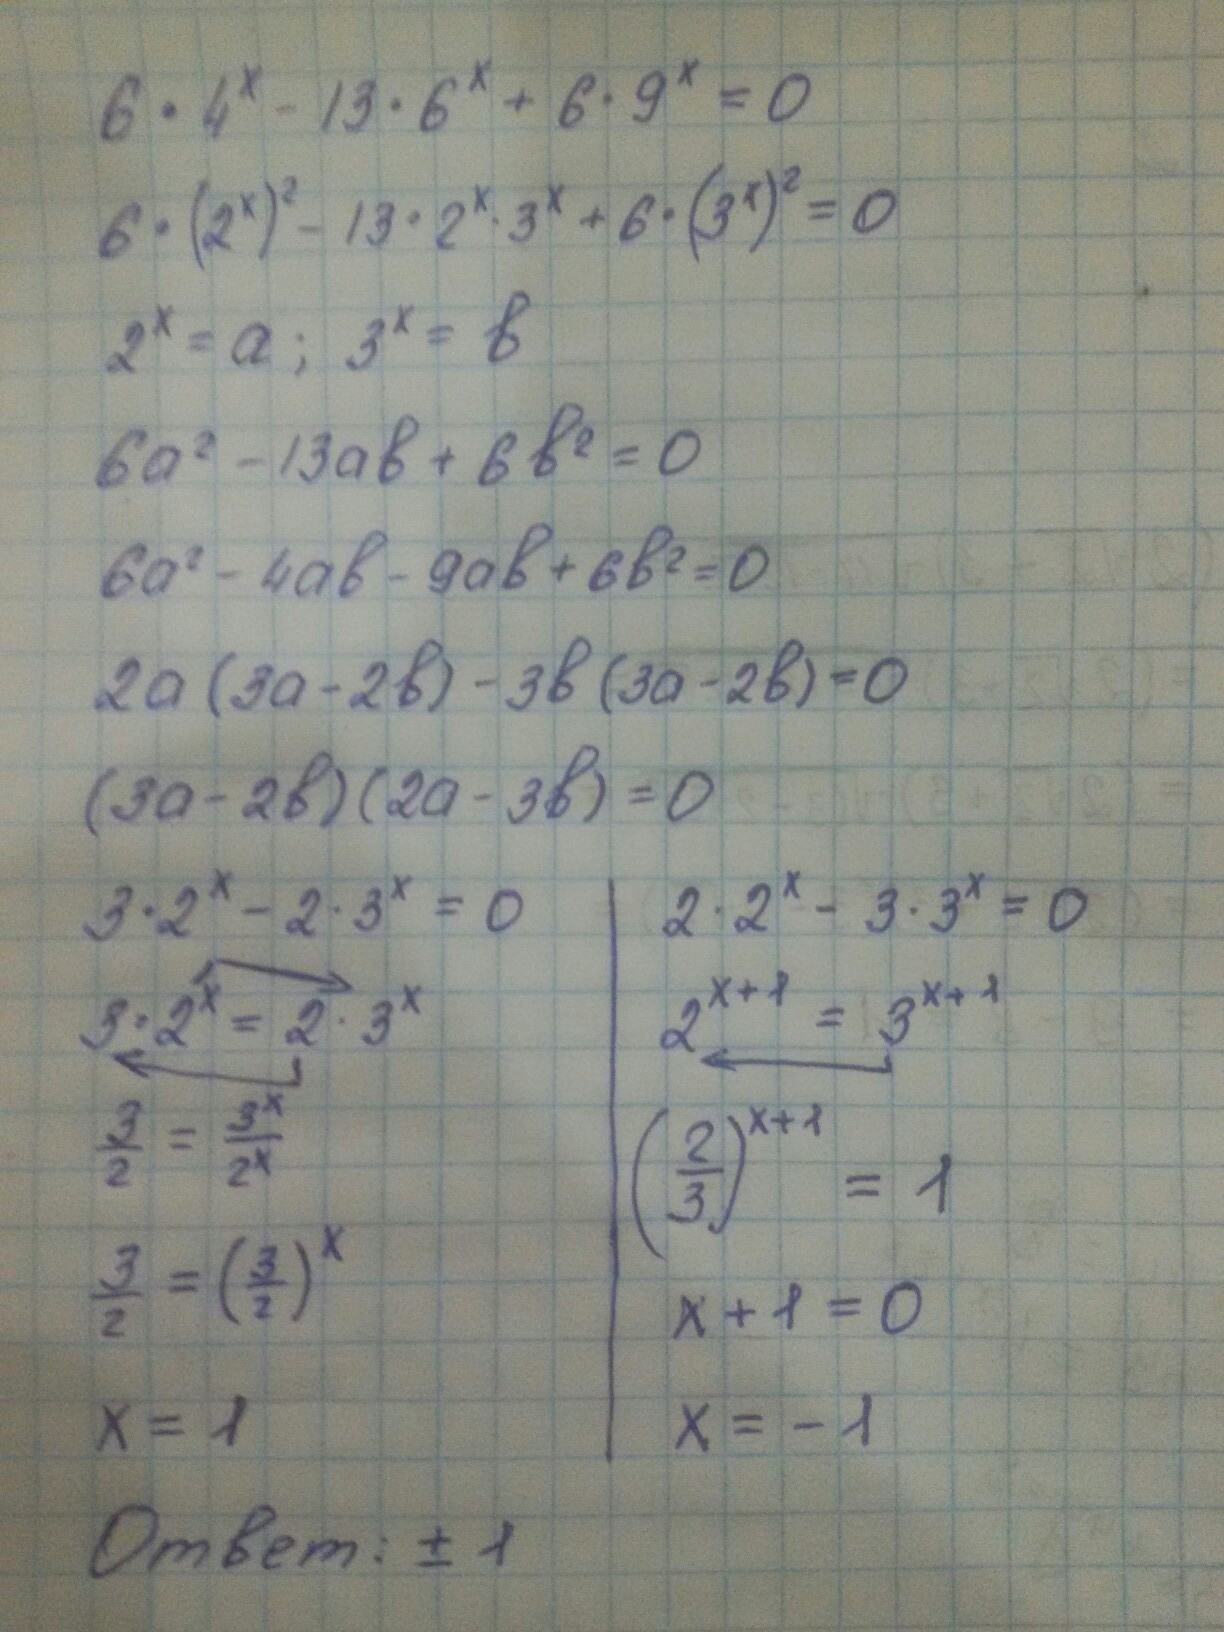 6 · 4^x - 13 · 6^x + 6 · 9^x = 0
6 · (2^x)^2 - 13 · 2^x · 3^x + 6 · (3^x)^2 = 0
2^x = a; 3^x = в
6a² - 13aв + 6в² = 0
6a² - 4aв - 9aв + 6в² = 0
2a (3a - 2в) - 3в (3a - 2в) = 0
(3a - 2в) (2a - 3в) = 0
3 · 2^x - 2 · 3^x = 0
3 · 2^x = 2 · 3^x
3/2 = 3^x/2^x
3/2 = (3/2)^x
x = 1
2 · 2^x - 3 · 3^x = 0
2^(x+1) = 3^(x+1)
(2/3)^(x+1) = 1
x + 1 = 0
x = - 1
Ответ: ± 1